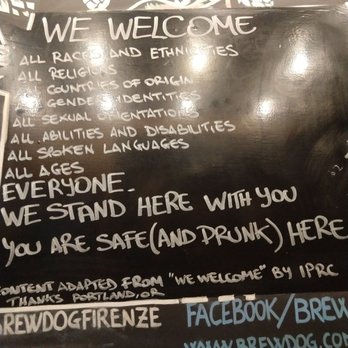 WE WELCOME
ALL RACES AND ETHNICITIES
ALL RELIGIONS
ALL COUNTRIES OF ORIGIN
ALL GENDER IDENTITIES
ALL SEXUAL ORIENTATIONS
ALL ABILITIES AND DISABILITIES
ALL SPOKEN LANGUAGES
ALL AGES
EVERYONE.
WE STAND HERE WITH YOU
YOU ARE SAFE (AND DRUNK) HERE
CONTENT ADAPTED FROM "WE WELCOME" BY IPRC
THANKS PORTLAND, OR
BREWDOGFIRENZE
FACEBOOK/BREW
WWW.BREWDOG.COM